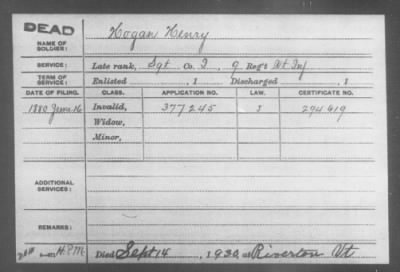 DEAD
NAME OF SOLDIER:
Hogan Henry
SERVICE: Late rank, Sgt Co. I, 9 Reg't Vt Inf
TERM OF SERVICE: Enlisted , 1 Discharged , 1
DATE OF FILING. CLASS. APPLICATION NO. LAW. CERTIFICATE NO.
1880 June 16 Invalid, 377245 294619
Widow,
Minor,
ADDITIONAL SERVICES:
REMARKS:
Died Sept 14, 1930, at Riverton Vt